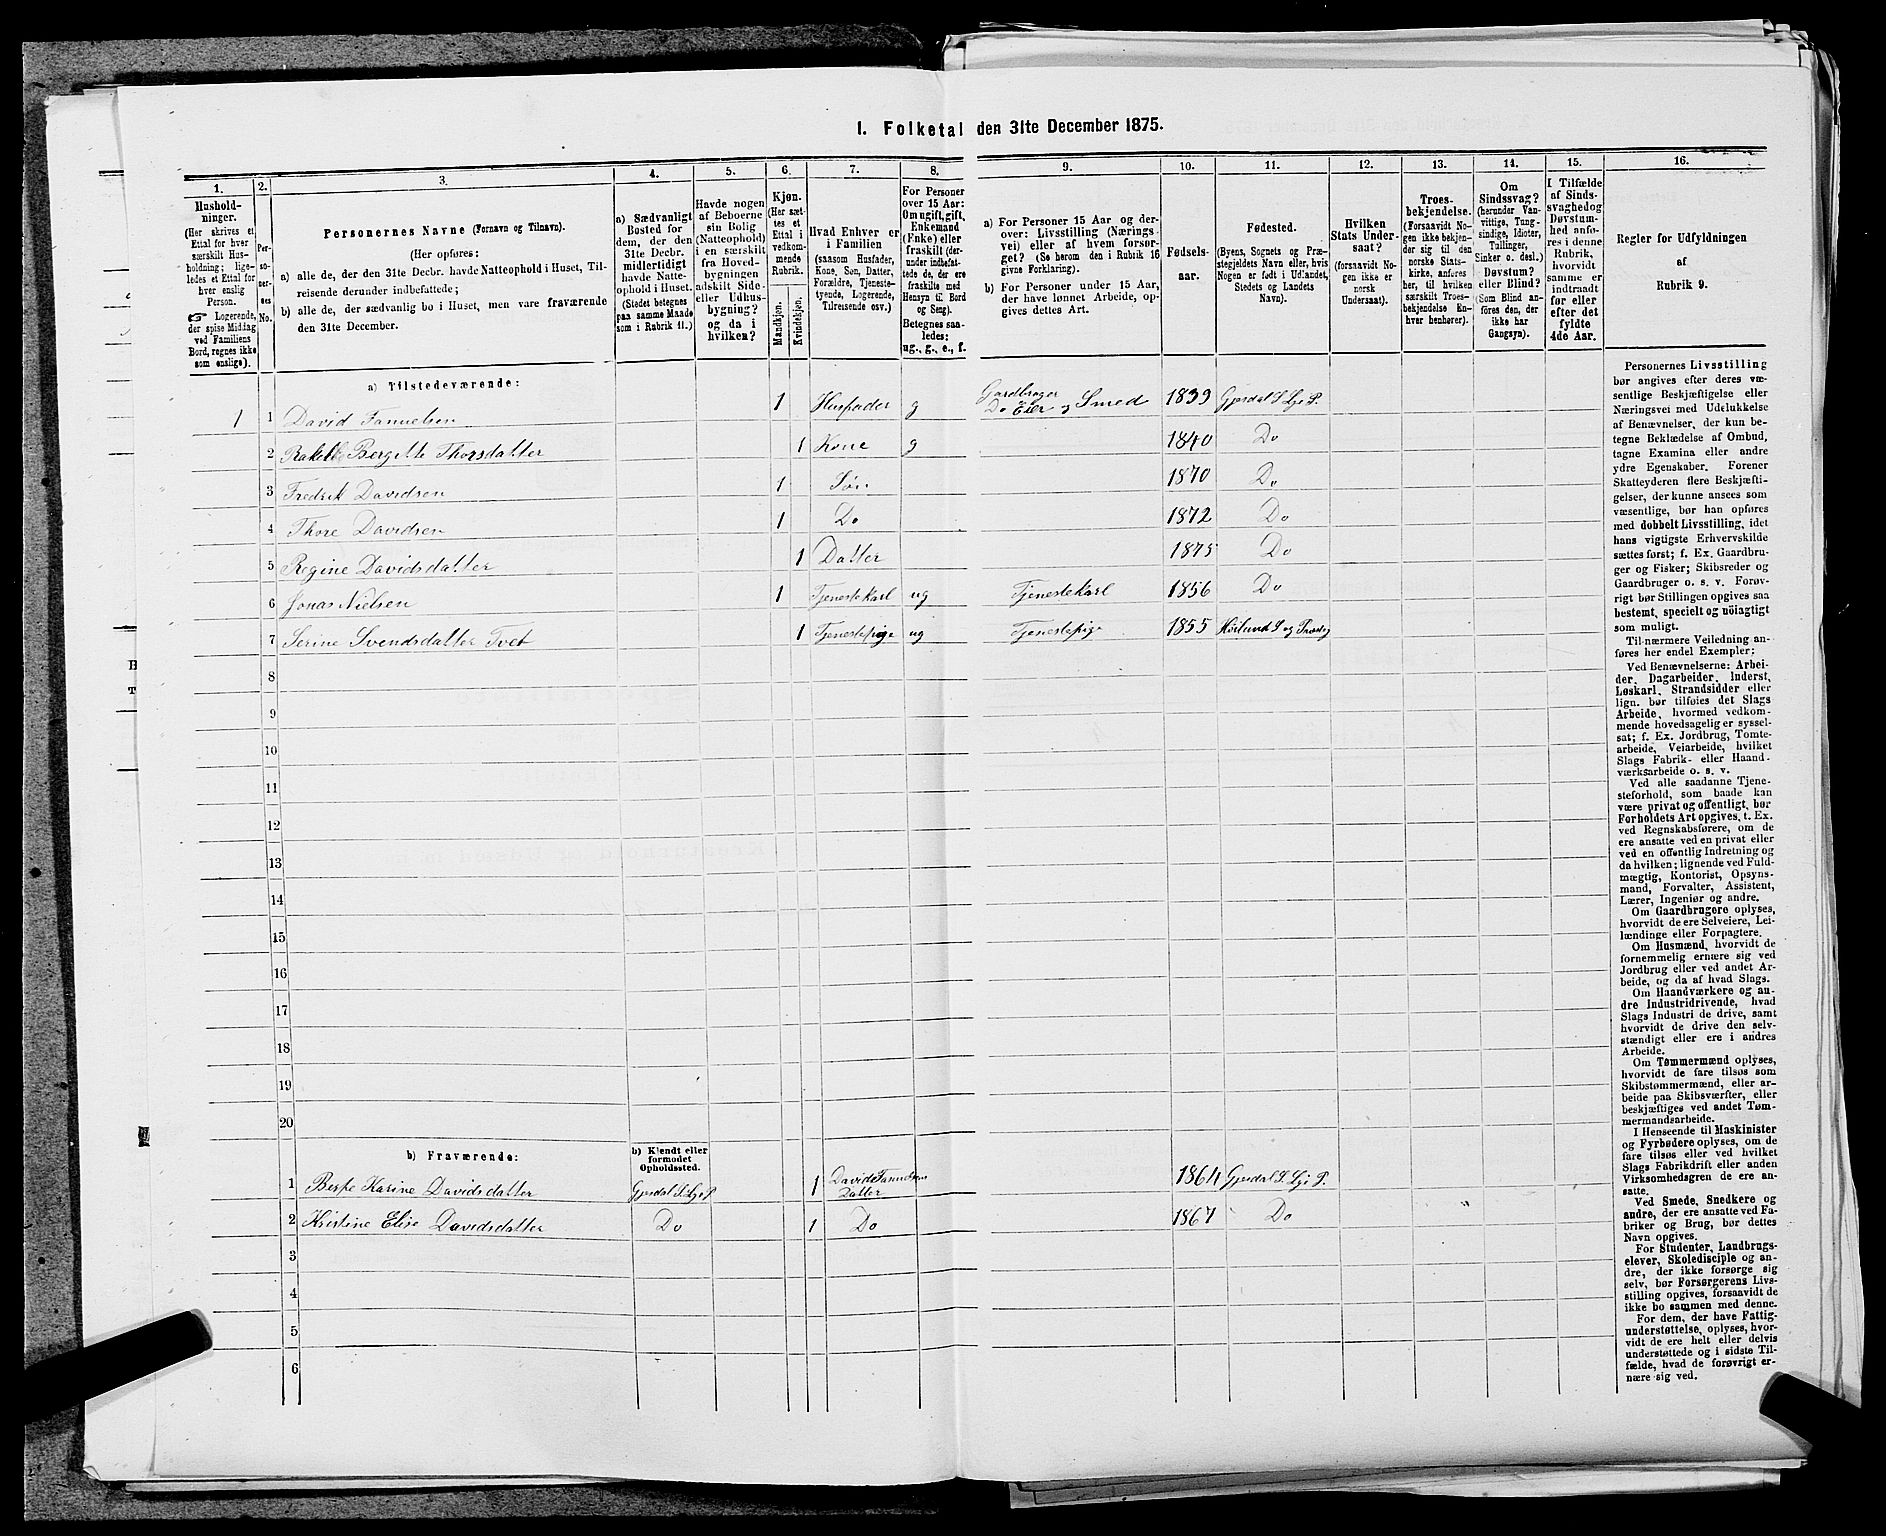 I. Folketal den 31te December 1875.
1. 2. 3. 4. 5. 6. 7. 8. 9. 10. 11. 12. 13. 14. 15. 16.
Hushold-
ninger.
(Her skrives et
Ettal for hver
særskilt Hus-
holdning; lige-
ledes et Ettal for
hver enslig
Person.
☞ Logerende,
der spise Middag
ved Familiens
Bord, regnes ikke
som enslige).
Per-
so-
ner-
nes
No.
Personernes Navne (Fornavn og Tilnavn).
(Her opføres:
a) alle de, der den 31te Decbr. havde Natteophold i Huset, Til-
reisende derunder indbefattede;
b) alle de, der sædvanlig bo i Huset, men vare fraværende
den 31te December.
a) Sædvanligt
Bosted for
dem, der den
31te Decbr.
midlertidigt
havde Natte-
ophold i Huset.
(Stedet betegnes
paa samme Maade
som i Rubrik 11.)
Havde nogen
af Beboerne
sin Bolig
(Natteophold)
i en særskilt
fra Hoved-
bygningen
adskilt Side-
eller Udhus-
bygning?
og da i
hvilken?
Kjøn.
(Her sæt-
tes et
Ettal i
vedkom-
mende
Rubrik.
Mandkjøn.
Kvindekjøn.
Hvad Enhver er
i Familien
(saasom Husfader,
Kone, Søn, Datter,
Forældre, Tjeneste-
tyende, Logerende,
Tilreisende osv.)
For Personer
over 15 Aar:
Om ugift, gift,
Enkemand
(Enke) eller
fraskilt (der-
under indbefat-
tede de, der ere
fraskilte med
Hensyn til Bord
og Seng).
Betegnes saa-
ledes:
ug., g., e., f.
a) For Personer 15 Aar og der-
over: Livsstilling (Nærings-
vei) eller af hvem forsør-
get? (Se herom den i Rubrik 16
givne Forklaring).
b) For Personer under 15 Aar,
der have lønnet Arbeide, op-
gives dettes Art.
Fødsels-
aar.
Fødested.
(Byens, Sognets og Præ-
stegjeldets Navn eller, hvis
Nogen er født i Udlandet,
Stedets og Landets
Navn).
Hvilken
Stats Under-
saat?
(forsaavidt No-
gen ikke er
norsk
Undersaat).
Troes-
bekjendelse.
(Forsaavidt No-
gen ikke bekjen-
der sig til den
norske Stats-
kirke, anføres
her, til hvilken
særskilt Troes-
bekjendelse En-
hver henhører).
Om
Sindssvag?
(herunder Van-
vittige, Tung-
sindige, Idioter,
Tullinger,
Sinker o. desl.)
Døvstum?
eller Blind?
(Som Blind an-
føres den, der
ikke har
Gangsyn).
I Tilfælde
af Sinds-
svaghed og
Døvstum-
hed anfø-
res i denne
Rubrik,
hvorvidt
samme er
indtraadt
før eller
efter det
fyldte
4de Aar.
Regler for Udfyldningen
af
Rubrik 9.
a) Tilstedeværende:
1 1 David Fannelsen 1 Husfader g Gardbruger
Do Eier og Smed 1839 Gjesdal S. Lye P.
2 Rakel Bergitte Thorsdatter 1 Kone g 1840 Do
3 Fredrik Davidsen 1 Søn 1870 Do
4 Thore Davidsen 1 Do 1872 Do
5 Regine Davidsdatter 1 Datter 1875 Do
6 Jonas Nielsen 1 Tjenestekarl ug Tjenestekarl 1856 Do
7 Serine Svendsdatter Tvet 1 Tjenestepige ug Tjenestepige 1855 S og
8
9
10
11
12
13
14
15
16
17
18
19
20
b) Fraværende:
b) Kjendt eller
formodet
Opholdssted.
1 Karine Davidsdatter Gjesdal S. Lye P 1 David Fannelsens
Datter 1864 Gjesdal S. Lye P.
2 Kristine Elise Davidsdatter Do 1 Do 1867 Do
3
4
5
6
Personernes Livsstilling
bør angives efter deres væ-
sentlige Beskjæftigelse eller
Næringsvei med Udelukkelse
af Benævnelser, der kun be-
tegne Beklædelse af Ombud,
tagne Examina eller andre
ydre Egenskaber. Forener
Skatteyderen flere Beskjæfti-
gelser, der kunne ansees som
væsentlige, bør han opføres
med dobbelt Livsstilling, idet
hans vigtigste Erhvervskilde
sættes først; f. Ex. Gaardbru-
ger og Fisker; Skibsreder og
Gaardbruger o. s. v. Forøv-
rigt bør Stillingen opgives saa
bestemt, specielt og nöiagtigt
som muligt.
Til nærmere Veiledning an-
føres her endel Exempler:
Ved Benævnelserne: Arbei-
der, Dagarbeider, Inderst,
Løskarl, Strandsidder eller
lign. bør tilføies det Slags
Arbeide, hvormed vedkom-
mende hovedsagelig er syssel-
sat; f. Ex. Jordbrug, Tomte-
arbeide, Veiarbeide, hvilket
Slags Fabrik- eller Haand-
værksarbeide o. s. v.
Ved alle saadanne Tjene-
steforhold, som baade kan
være privat og offentligt, bør
Forholdets Art opgives, t. Ex.
ved Regnskabsførere, om de
ere ansatte ved en privat eller
ved en offentlig Indretning og
da hvilken; lignende ved Fuld-
mægtig, Kontorist, Opsyns-
mand, Forvalter, Assistent,
Lærer, Ingeniør og andre.
Om Gaardbrugere oplyses,
hvorvidt de ere Selveiere, Lei-
lændinge eller Forpagtere.
Om Husmænd, hvorvidt de
fornemmelig ernære sig ved
Jordbrug eller ved andet Ar-
beide, og da af hvad Slags.
Om Haandværkere og an-
dre Industridrivende, hvad
Slags Industri de drive, samt
hvorvidt de drive den selv-
stændigt eller ere i andres
Arbeide.
Om Tømmermænd oplyses,
hvorvidt de fare tilsøs som
Skibstømmermænd, eller ar-
beide paa Skibsværfter, eller
beskjæftiges ved andet Tøm-
mermandsarbeide.
I Henseende til Maskinister
og Fyrbødere oplyses, om de
fare tilsøs eller ved hvilket
Slags Fabrikdrift eller anden
Virksomhedsgren de ere an-
satte.
Ved Smede, Snedkere og
andre, der ere ansatte ved Fa-
briker og Brug, bør dettes
Navn opgives.
For Studenter, Landbrugs-
elever, Skoledisciple og an-
dre, der ikke forsørge sig
selv, bør Forsørgerens Livs-
stilling opgives, forsaavidt de
ikke bo sammen med denne.
For dem, der have Fattig-
understøttelse, oplyses, hvor-
vidt de ere helt eller delvis
understøttede og i sidste Til-
fælde, hvad de forøvrigt er-
nære sig ved.